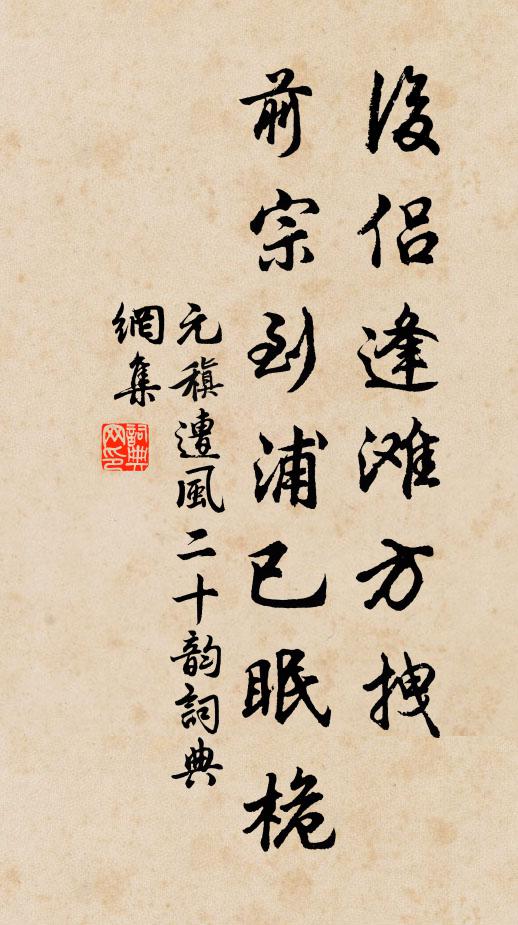 後侣逢滩方拽
前宗到浦已眠桅
元稹遭風二十韵詞典
網集
詞典
网印